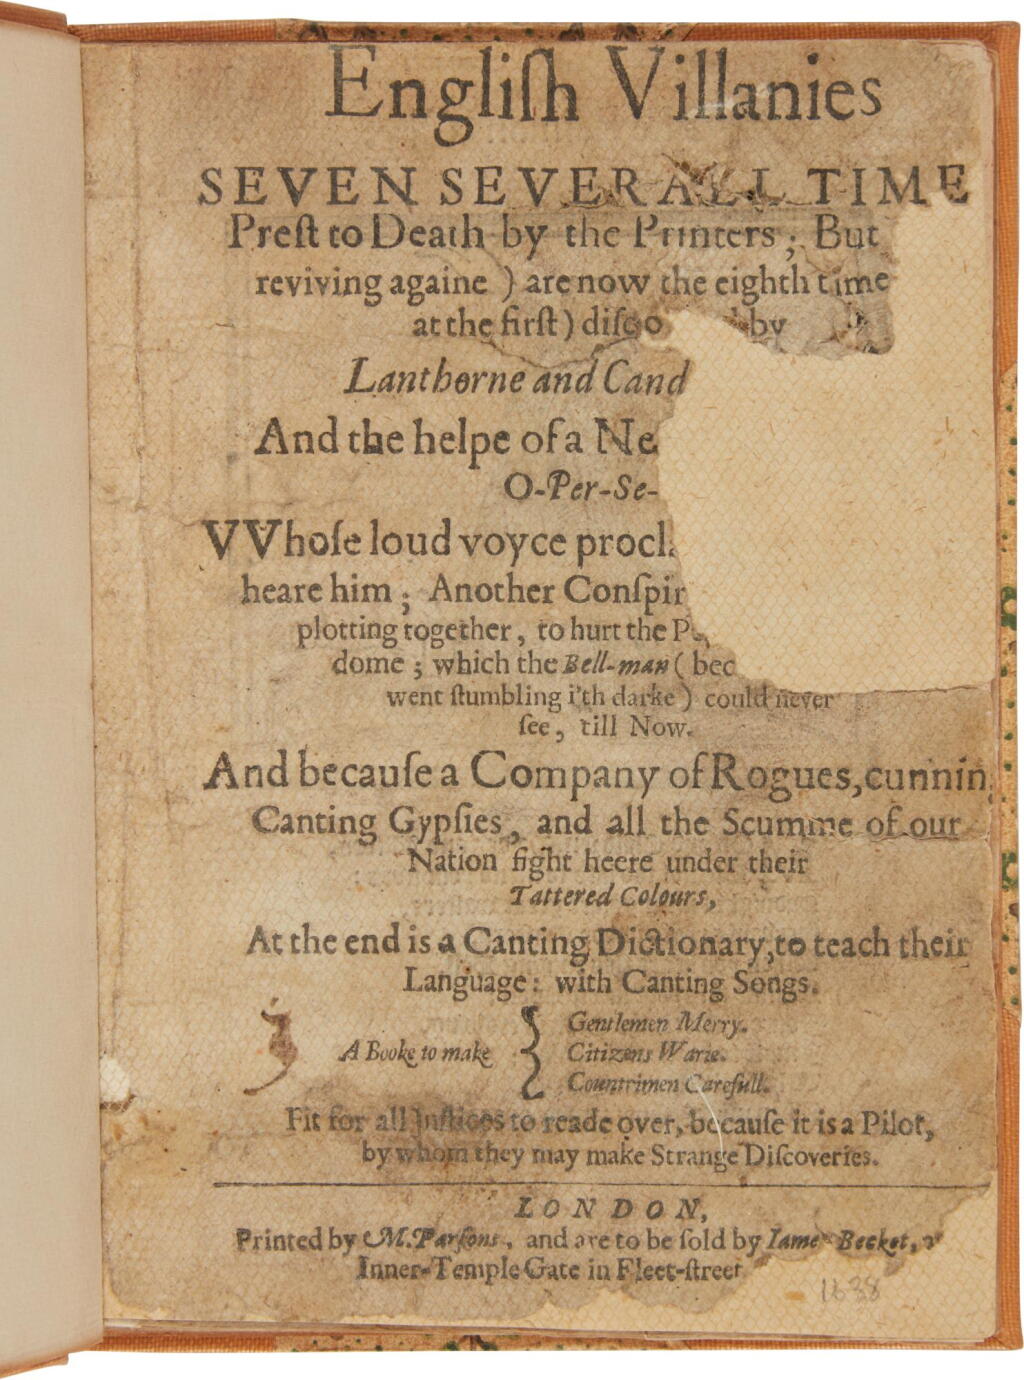 Engliſh Villanies
SEVEN SEVERALL TIME
Preſt to Death by the Printers; But
reviving againe ) are now the eighth time
at the firſt) diſco by
Lanthorne and Cand
And the helpe of a Ne
O-Per-Se-
VVhoſe loud voyce procl
heare him; Another Conſpir
plotting together, to hurt the P
dome; which the Bell-man ( bec
went ſtumbling i'th darke ) could never
ſee, till Now.
And becauſe a Company of Rogues, cunnin
Canting Gypſies, and all the Scumme of our
Nation fight heere under their
Tattered Colours,
At the end is a Canting Dictionary, to teach their
Language: with Canting Songs.
A Booke to make { Gentlemen Merry.
Citizens Warie.
Countrimen Carefull.
Fit for all Juſtices to reade over, becauſe it is a Pilot,
by whom they may make Strange Diſcoveries.
LONDON,
Printed by M. Parſons, and are to be ſold by Iames Becket,
Inner-Temple Gate in Fleet-ſtreet
1638